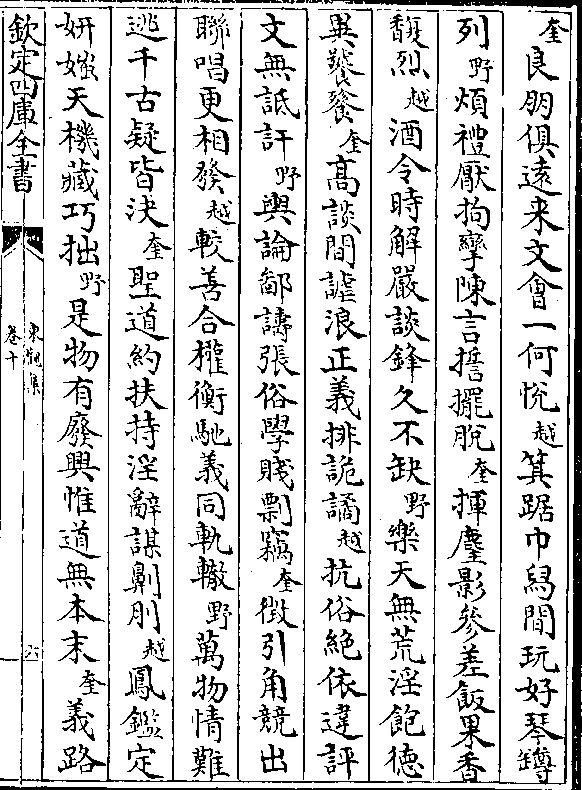 奎良朋俱遠来文會一何悅越箕踞巾舄間玩好琴罇
列野煩禮厭拘攣陳言誓擺脫奎揮麈影參差飯果香
馥烈越酒令時解嚴談鋒久不缺野樂天無荒淫飽德
異饕餮奎高談間謔浪正義排詭譎越抗俗絶依違評
文無詆訐野輿論鄙譸張俗學賤剽竊奎徵引角競出
聯唱更相發越較善合權衡馳義同軌轍野萬物情難
逃千古疑皆決奎聖道約扶持淫辭謀劓刖越鳳鑑定
妍媸天機藏巧拙野是物有廢興惟道無本末奎義路
欽定四庫全書
東觀集
卷十
六